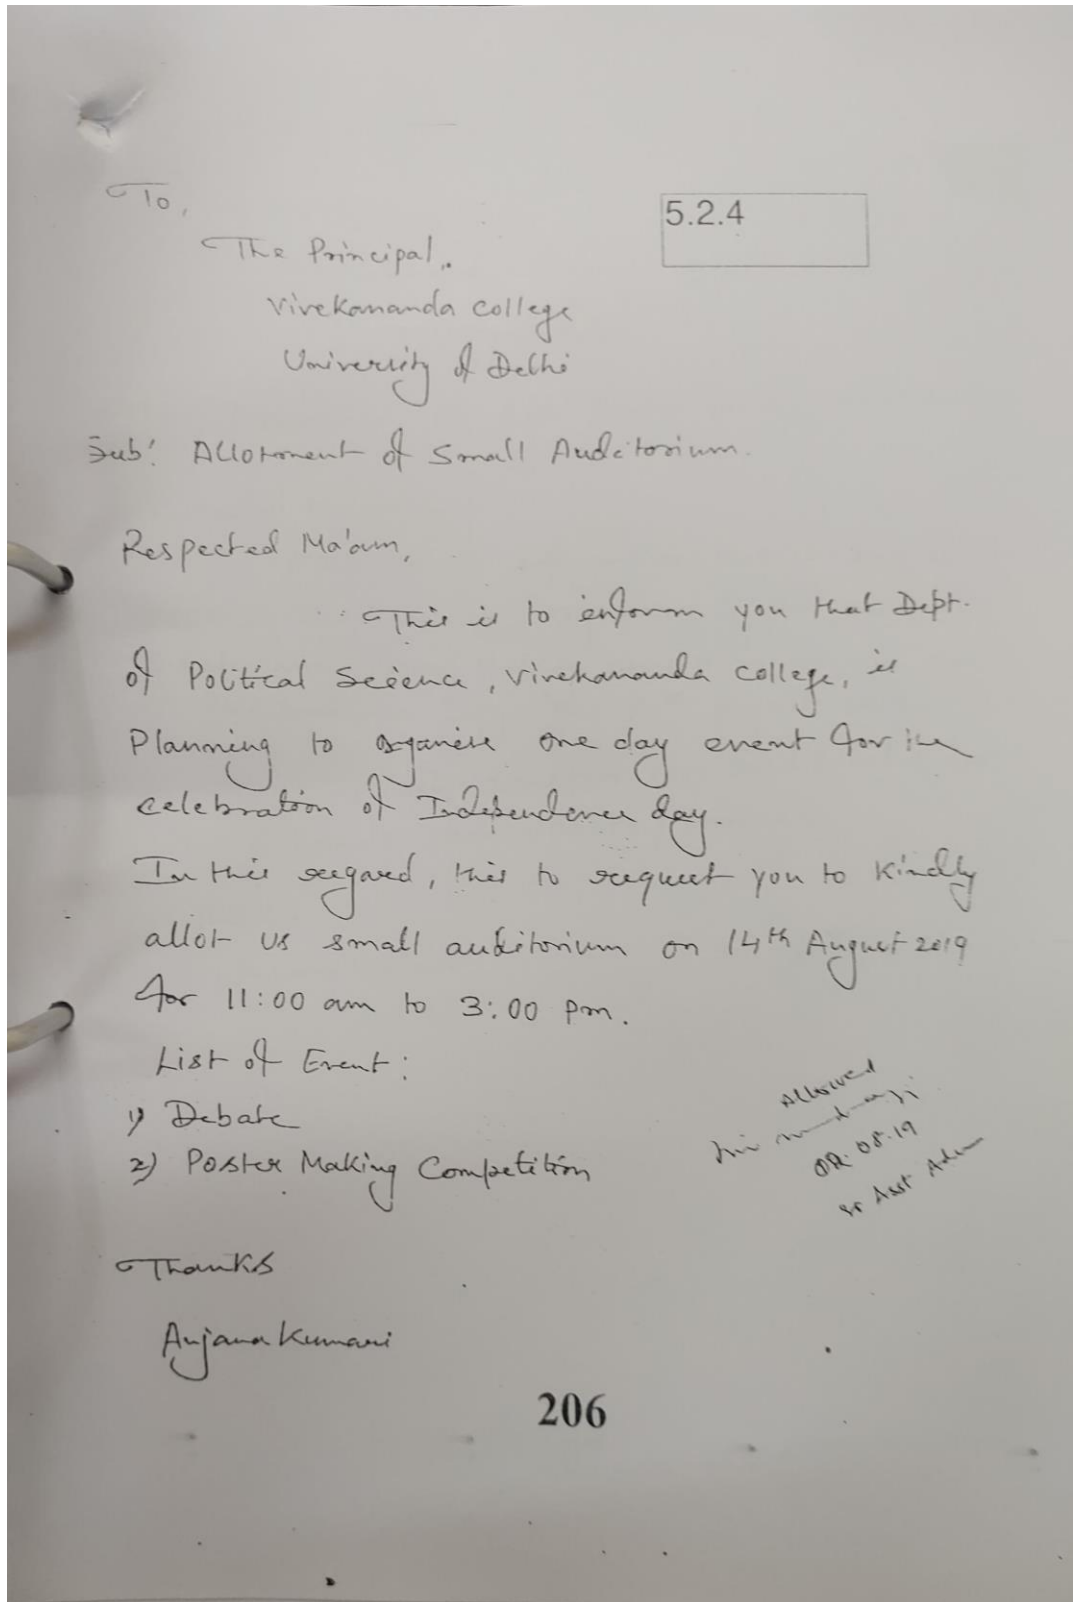 To,
5.2.4
The Principal,
Vivekananda College
University of Delhi
Sub: Allotment of Small Auditorium.
Respected Ma'am,
This is to inform you that Dept.
of Political Science, Vivekananda College, is
Planning to organise one day event for the
celebration of Independence day.
In this regard, this to request you to kindly
allot us small auditorium on 14th August 2019
for 11:00 am to 3:00 pm.
List of Event:
1) Debate
2) Poster Making Competition
Allowed
08.19
Sr Asst Adm
Thanks
Anjana Kumari
206